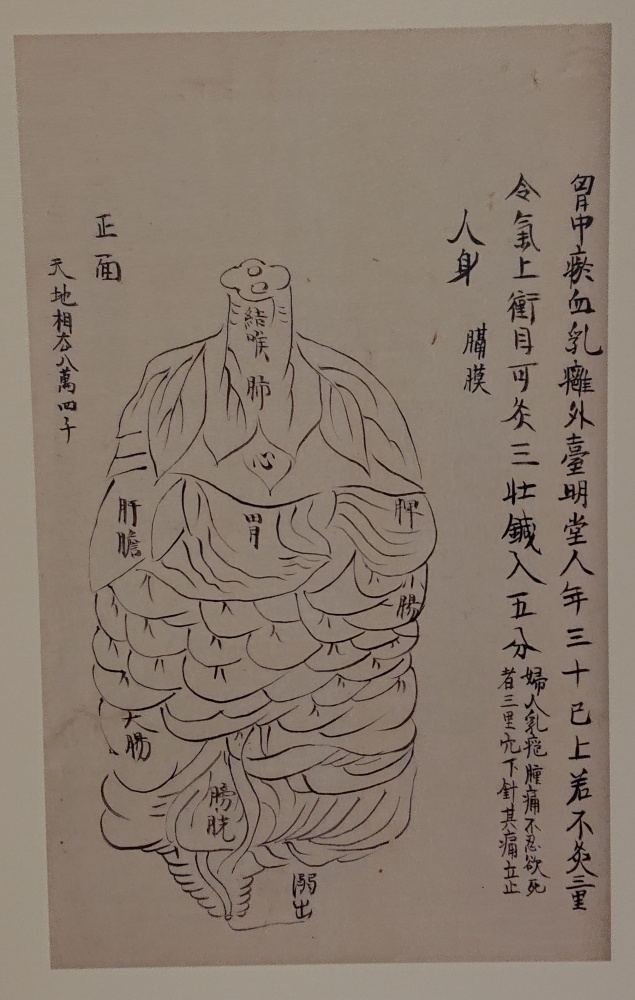 胷中瘀血乳癰外臺明堂人年三十已上若不灸三里
令氣上衝目可灸三壯鍼入五分
婦人乳腫痛不忍欲死
者三里穴下針其痛立止
人身
膈膜
結喉
肺
心
脾
胃
肝膽
小腸
大腸
膀胱
溺出
正面
天地相去八萬四千